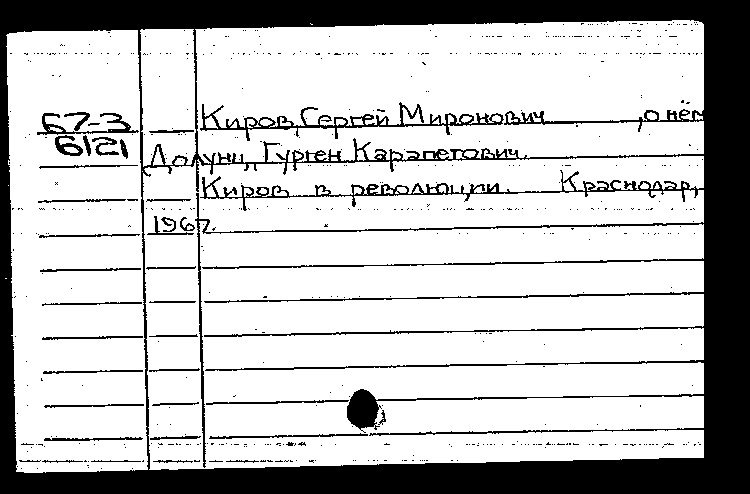 67-3 Киров, Сергей Миронович, о нём
6121 Долуни, Гурген Карапетович.
Киров в революции. Краснодар,
1967.